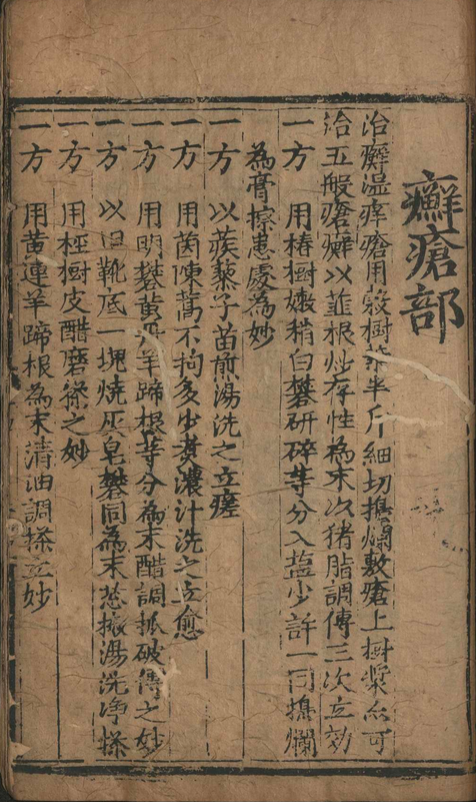 癬瘡部
治癬濕痒瘡用穀樹葉半斤細切搗爛敷瘡上樹漿亦可
治五般瘡癬以韮根炒存性為末以猪脂調傅三次立効
一方 用椿樹嫩稍白礬研碎等分入塩少許一同搗爛
為膏擦患處為妙
一方 以蒺藜子苗煎湯洗之立瘥
一方 用茵陳蒿不拘多少煮濃汁洗之立愈
一方 用明礬黄丹羊蹄根等分為末醋調抓破傅之妙
一方 以旧靴底一塊燒灰皂礬同為末葱椒湯洗净搽
一方 用桱樹皮醋磨搽之妙
一方 用黄連羊蹄根為末清油調搽立妙